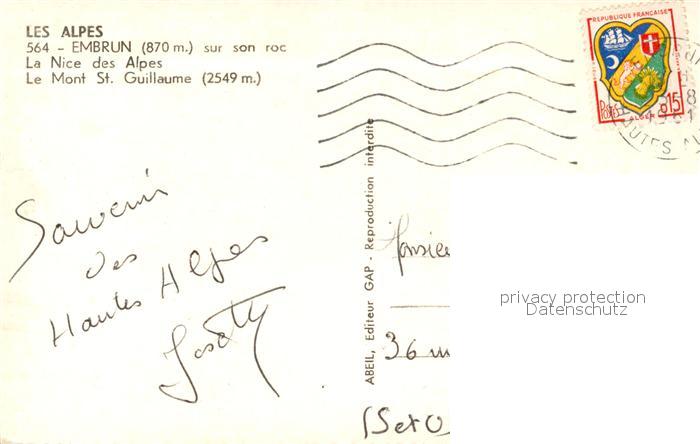 LES ALPES
564 - EMBRUN (870 m.) sur son roc
La Nice des Alpes
Le Mont St. Guillaume (2549 m.)
REPUBLIQUE FRANÇAISE
POSTES 0,15
ALGER
Souvenir
des
Hautes Alpes
Josette
ABEIL, Editeur GAP - Reproduction interdite
Monsie
36
(Set O
privacy protection
Datenschutz